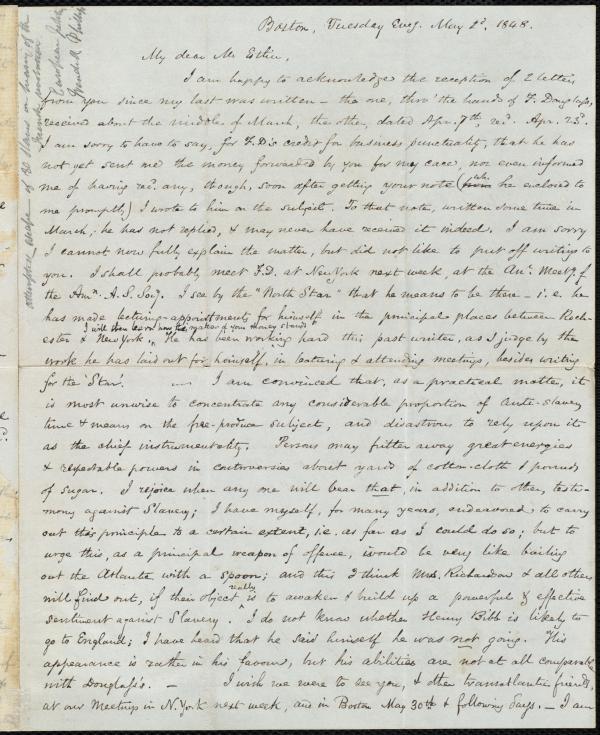 Boston, Tuesday Eveg. May 2d. 1848.
My dear Mr Estlin,
I am happy to acknowledge the reception of 2 letters
from you since my last was written – the one, thro' the hands of F. Douglass,
received about the middle of March, the other, dated Apr. 7th, recd. Apr. 23d.
I am sorry to have to say, for F.D's credit for business punctuality, that he has
not yet sent me the money forwarded by you for my care, nor even informed
me of having recd. any, though, soon after getting your note (wh. he enclosed to
me promptly) I wrote to him on the subject. To that note, written some time in
March, he has not replied, & may never have received it indeed. I am sorry
I cannot now fully explain the matter, but did not like to put off writing to
you. I shall probably meet F.D. at New York next week, at the Anl. Meetg. of
the Amn. A.S. Socy. I see by the "North Star" that he means to be there – i.e. he
has made lecturing-appointments for himself in the principal places between Roch-
ester & New York. I will then learn how the matter of your money stands. He has been working hard this past winter, as I judge by the
work he has laid out for himself, in lecturing & attending meetings, besides writing
for the 'Star. — I am convinced that, as a practical matter, it
is most unwise to concentrate any considerable proportion of Anti-slavery
time & means on the free-produce subject, and disastrous to rely upon it
as the chief instrumentality. Persons may fritter away great energies
& respectable powers in controversies about yards of cotton-cloth & pounds
of sugar. I rejoice when any one will bear that, in addition to other, testi-
mony against Slavery; I have myself, for many years, endeavored to carry
out this principle to a certain extent, i.e. as far as I could do so; but to
urge this, as a principal weapon of offence, would be very like bailing
out the Atlantic with a spoon; and this I think Mrs. Richardson & all others
will find out, if their object is really to awaken & build up a powerful & effective
sentiment against Slavery. I do not know whether Henry Bibb is likely to
go to England; I have heard that he said himself he was not going. His
appearance is rather in his favour, but his abilities are not at all comparable
with Douglass's. — I wish we were to see you, & other transatlantic friends,
at our Meetings in N. York next week, and in Boston May 30th & following days. – I am
attempted escape of 80 slaves on hearing of the
French revolution
European
Wendell Phillips